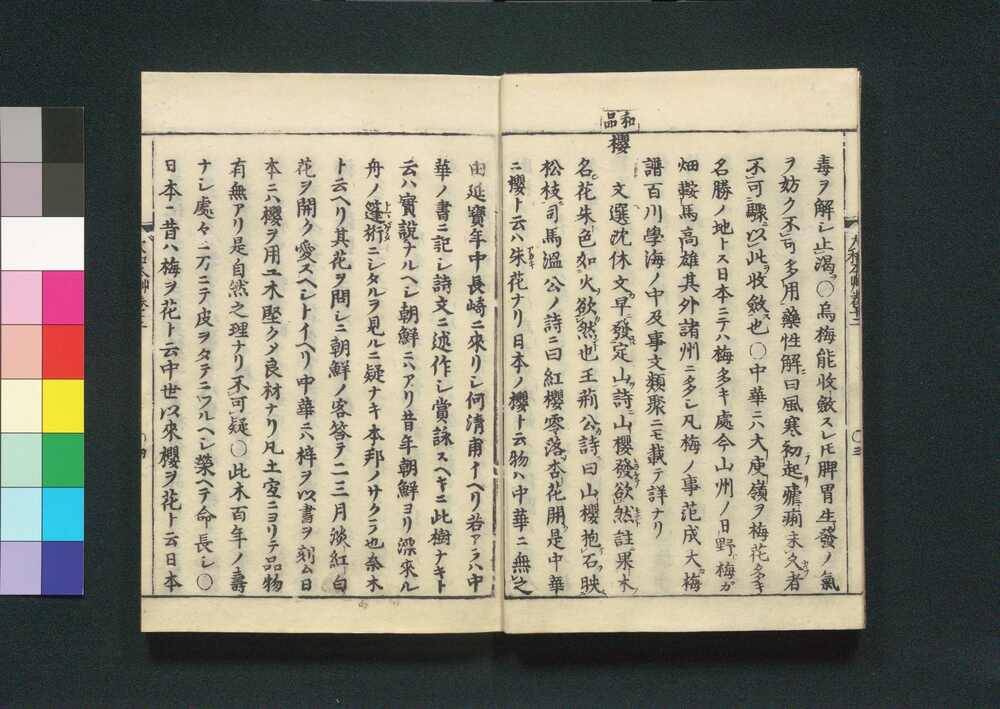 毒ヲ解シ止渇○烏梅能收斂スレ𪜈脾胃生發ノ氣
ヲ妨ク不可多用藥性解曰風寒初起瘧痢未久者
不可驟以此收斂也○中華ニハ大庾嶺ヲ梅花多キ
名勝ノ地トス日本ニテハ梅多キ處今山州ノ日野梅ガ
畑鞍馬高雄其外諸州ニ多シ凡梅ノ事范成大梅
譜百川學海ノ中及事文類聚ニモ載テ詳ナリ
和品
櫻
文選沈休文早發定山詩山櫻發欲然註果木
名花朱色如火欲然也王荊公詩曰山櫻抱石映
松枝司馬溫公ノ詩ニ曰紅櫻零落杏花開是中華
ニ櫻ト云ハ朱花ナリ日本ノ櫻ト云物ハ中華ニ無之
由延寶年中長崎ニ來リシ何清甫イヘリ若アラハ中
華ノ書ニ記シ詩文ニ述作シ賞詠スヘキニ此樹ナキト
云ハ實説ナルヘシ朝鮮ニハアリ昔年朝鮮ヨリ漂來ル
舟ノ篷術ニシタルヲ見ルニ疑ナキ本邦ノサクラ也奈木
ト云ヘリ其花ヲ問シニ朝鮮ノ客答テ二三月淡紅白
花ヲ開ク愛スヘシトイヘリ中華ニハ梓ヲ以書ヲ刻ム日
本ニハ櫻ヲ用ユ木堅クメ良材ナリ凡土宜ニヨリテ品物
有無アリ是自然之理ナリ不可疑○此木百年ノ壽
ナシ處々ニ刀ニテ皮ヲタテニワルヘシ榮ヘテ命長シ○
日本ニ昔ハ梅ヲ花ト云中世以來櫻ヲ花ト云日本